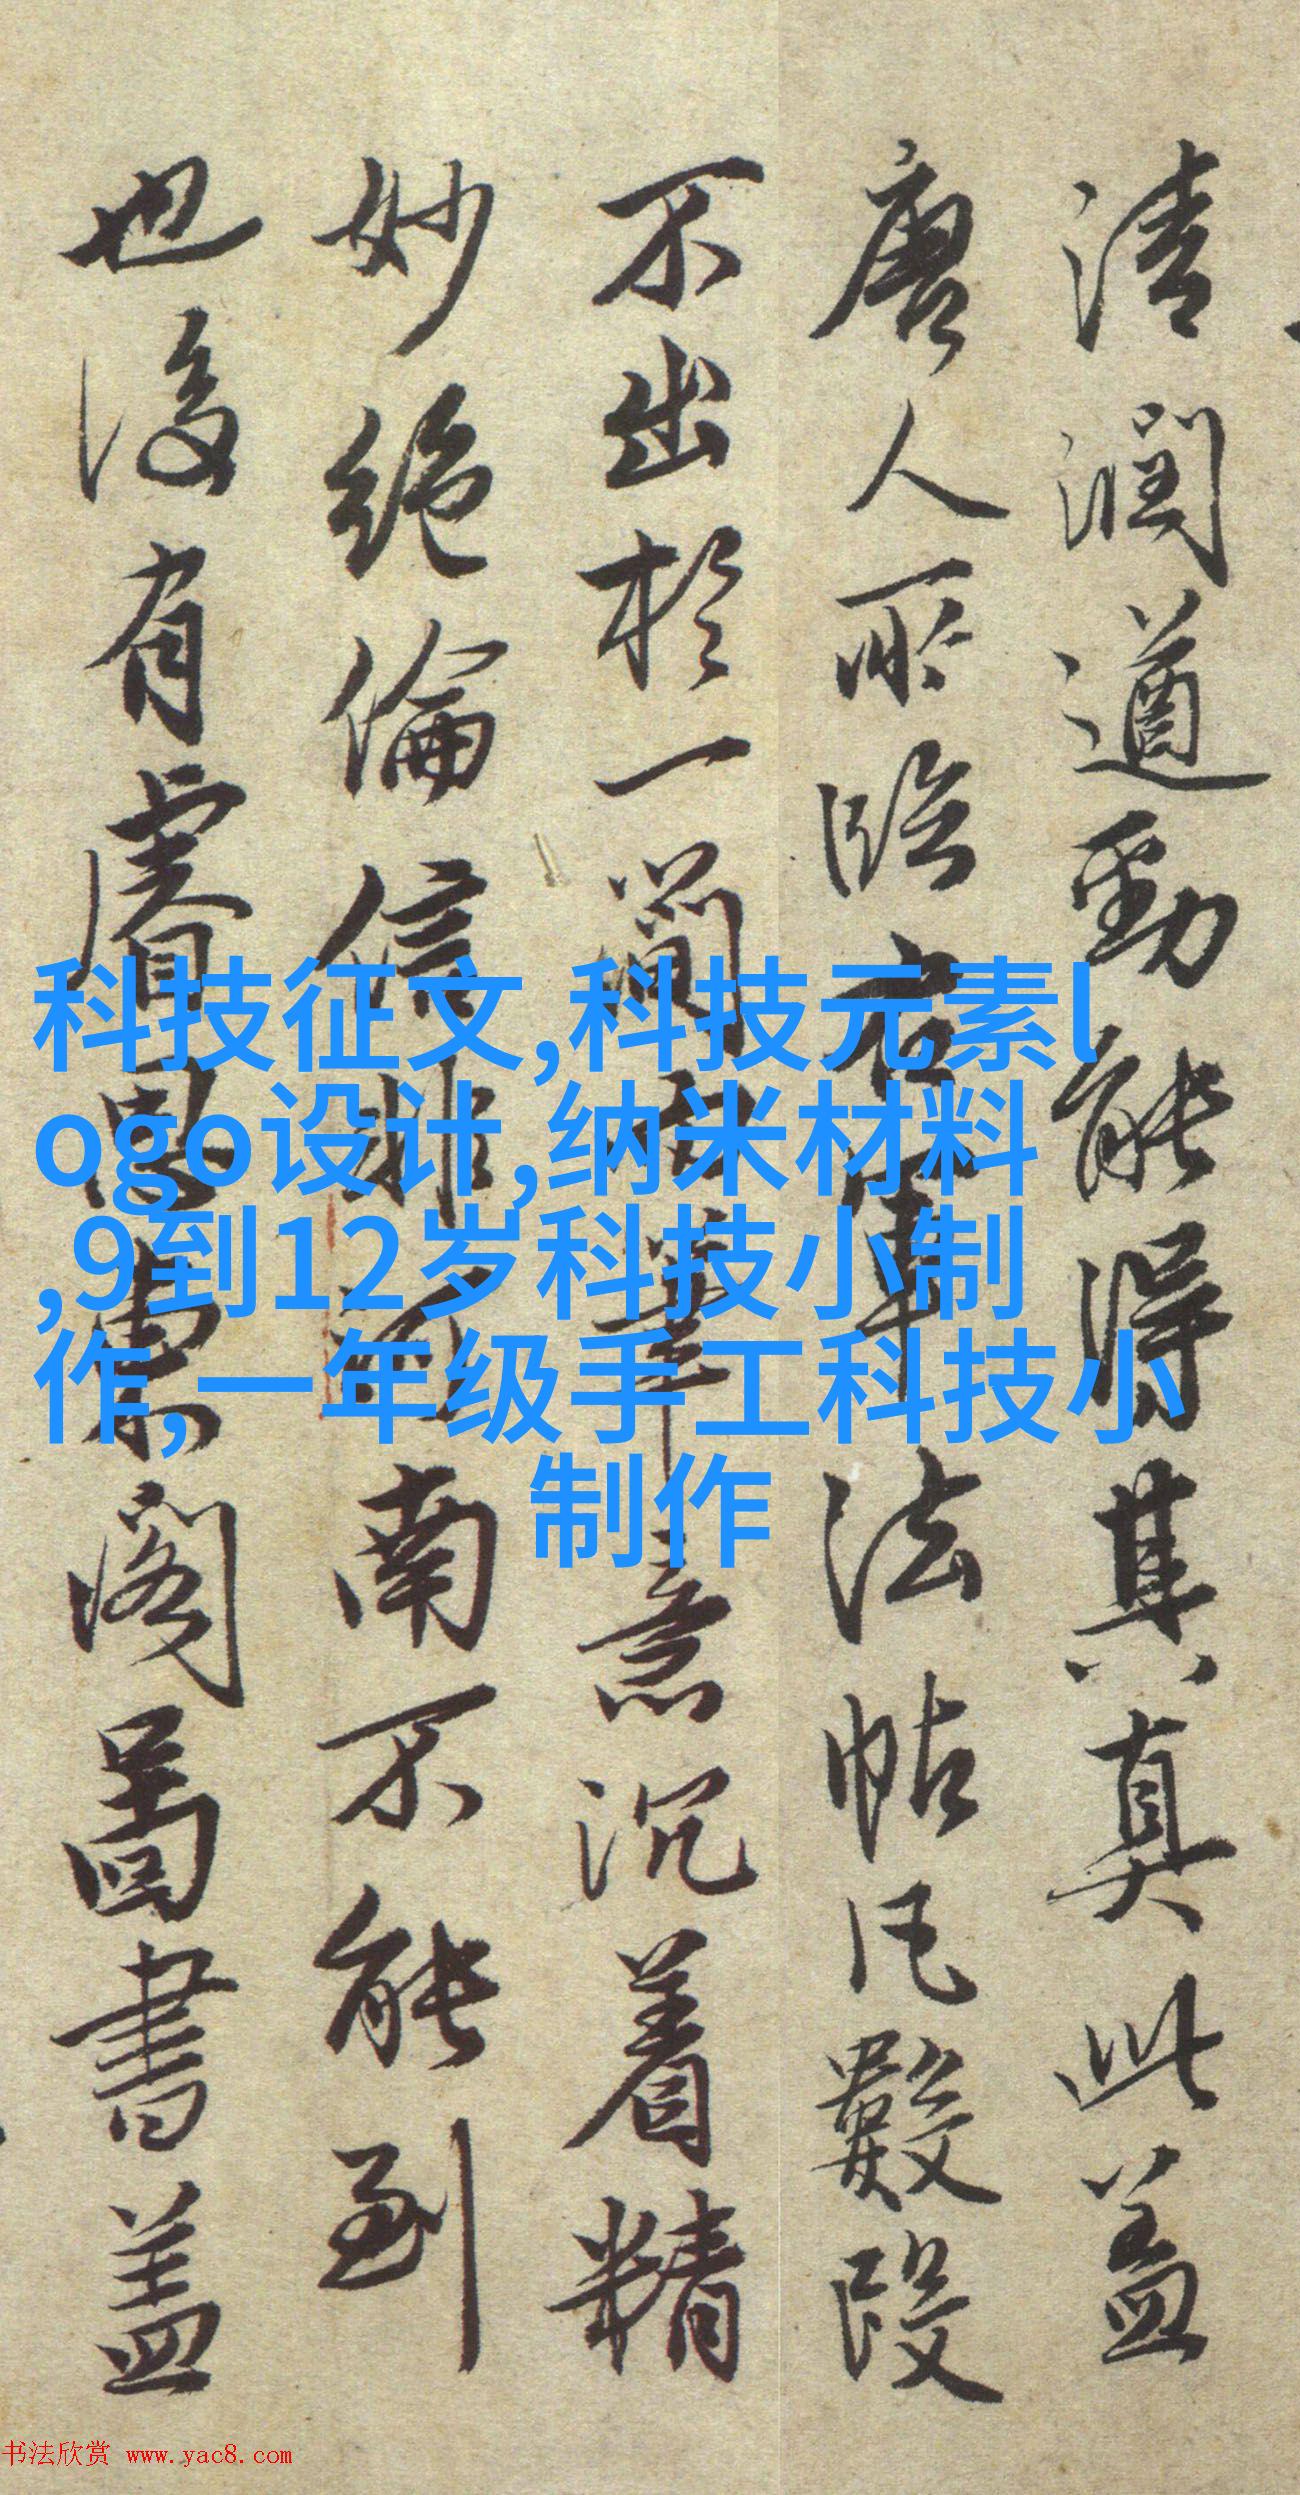 清潤遒勁能得其真此盖
唐人所臨右軍法帖凡數段
不出於一簡筆意沉着精
妙絶倫信非南不能到
也後有睿思東閣圖書盖
科技征文,科技元素l
ogo设计,纳米材料
,9到12岁科技小制
作,一年级手工科技小
制作
书法欣赏 www.yac8.com